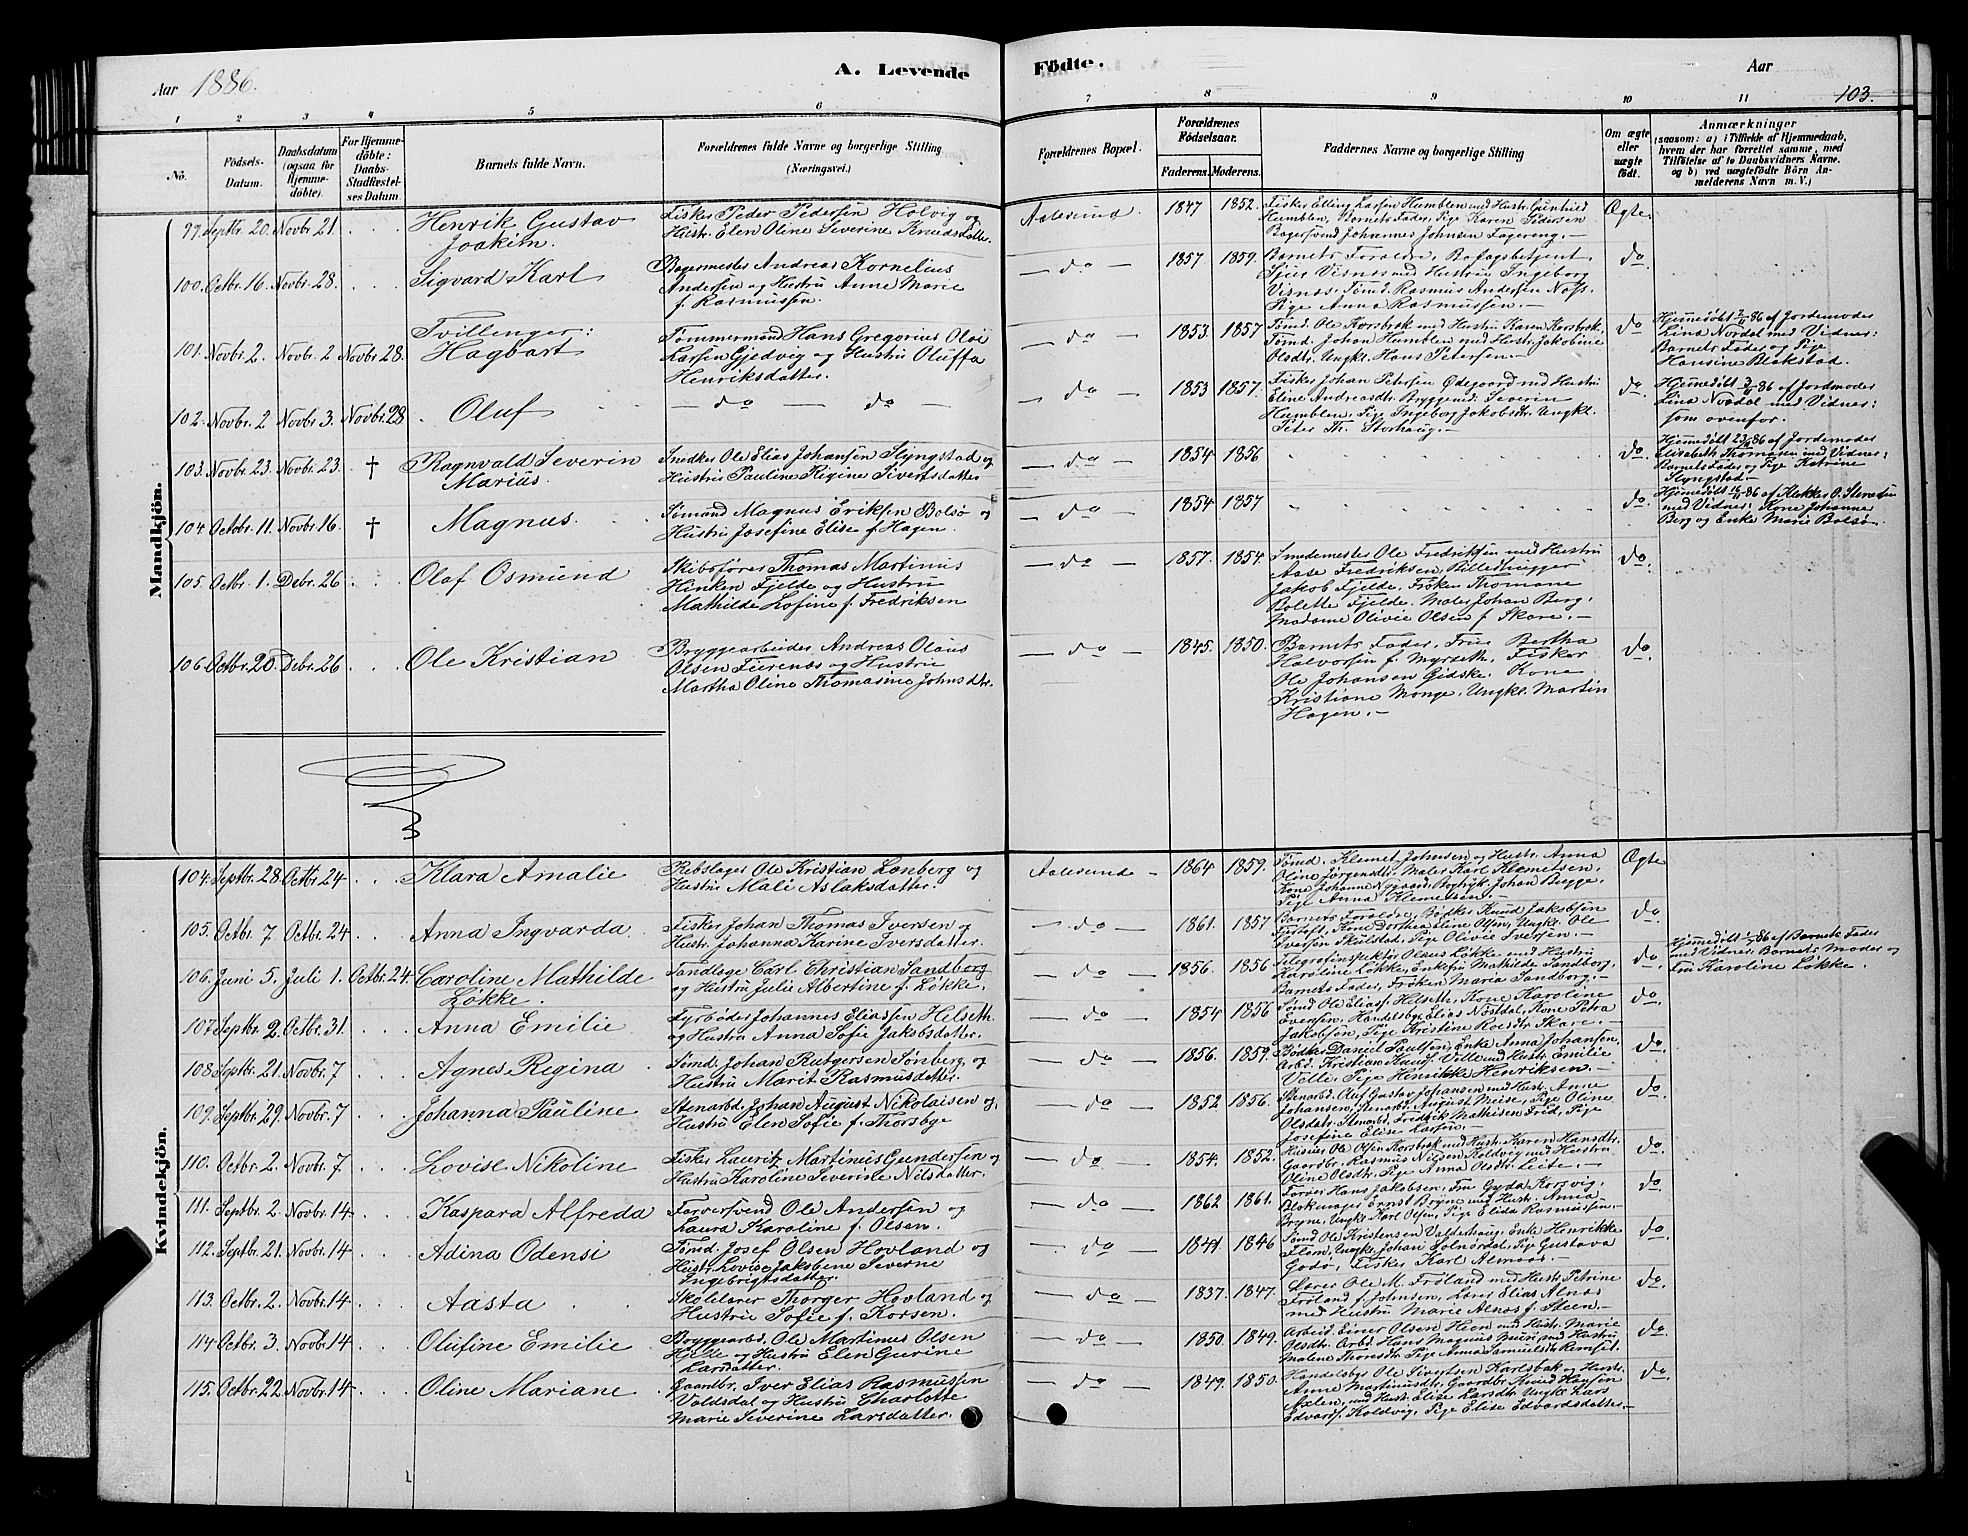 Aar 1886.
A. Levende
Födte.
Aar
103.
1 2 3 4 5 6 7 8 9 10 11
No.
Födsels-Datum.
Daabsdatum (ogsaa for Hjemmedöbte).
For Hjemmedöbte: Daabs-Stadfæstelses Datum.
Barnets fulde Navn.
Forældrenes fulde Navne og borgerlige Stilling (Næringsvei.)
Forældrenes Bopæl.
Forældrenes Födselsaar.
Faderens. Moderens.
Faddernes Navne og borgerlige Stilling
Om ægte eller uægte födt.
Anmærkninger
(saasom: a) i Tilfælde af Hjemmedaab,
hvem der har forrettet samme, med
Tilföielse af to Daabsvidners Navne.
og b) ved uægtefödte Börn Anmelderens Navn m. V.)
Mandkjön.
99. Septbr. 20. Novbr. 21. Henrik Gustav Joakim.
Fisker Peder Pedersen Holvig og
Hustr. Elen Oline Severine Knudsdatter.
Aalesund. 1847 1852.
Fisker Elling Larsen Humblen med Hustr. Gunhild
Humblen, Barnets Fader, Pige Karen Pedersen
Bagersvend Johannes Johnsen Fagereng.—
Ægte
100. Octbr. 16. Novbr. 28. Sigvard Karl
Bagermester Andreas Kornelius
Andersen og Hustru Anne Marie
f. Rasmussen.
— do — 1857 1859.
Barnets Forældre,
Visnes med Hustru Ingeborg
Visnes, Tømd. Rasmus Andersen
Pige Anna Rasmussen.—
do
Tvillinger:
101. Novbr. 2. Novbr. 2 Novbr. 28. Hagbart
Tømmermand Hans Gregorius Olai
Larsen Gjedvig og Hustru Oluffa
Henriksdatter.
— do — 1853. 1857
Tømd. Ole Korsbrek med Hustru Karen Korsbrek.
Tømd. Johan Humblen med Hustr. Jakobine
Olsdtr. Ungkl. Hans Petersen.—
do
Hjemmedöbt 2/11 86 af Jordemoder
Lina Nordal med Vidner:
Barnets Fader og Pige
Hansine Blakstad.
102. Novbr. 2 Novbr. 3. Novbr. 28 Oluf
— do — do —
— do — 1853 1857.
Fisker Johan Petersen Ødegaard med Hustru
Eline Andreasdtr. Bryggemd. Severin
Humblen, Pige Ingeborg Jakobsdtr. Ungkl.
Peter Th. Storhaug.—
do
Hjemmedöbt 3/11 86 af Jordmoder
Lina Nordal med Vidner:
som ovenfor.
103. Novbr. 23. Novbr. 23. † Ragnvald Severin Marius.
Snedker Ole Elias Johansen Slyngstad og
Hustru Pauline Regine Sivertsdatter
— do — 1854 1856
do.
Hjemmedöbt 23/11 86 af Jordemoder
Elisabeth Thomasen med Vidner:
Barnets Fader og Pige Katrine
Slyngstad.—
104. Octobr. 11. Novbr. 16. † Magnus.
Sømand Magnus Eriksen Bolsø og
Hustru Josefine Elise f. Hagen
— do — 1854 1857
do.
Hjemmedöbt 16/11 86 af Klokker O.
med Vidner: Kone Johanne
Berg og Enke Marie Bolsø.
105. Octbr. 1. Debr. 26 Olaf Osmund
Skibsfører Thomas Martinus
Hinken Fjelde og Hustru
Mathilde Losine f. Fredriksen
— do — 1857. 1854.
Smedemester Ole Fredriksen med Hustru
Aase Fredriksen, Billedhugger
Jakob Fjelde, Frøken Thomane
Bolette Fjelde. Maler Johan Berg,
Madame Olivie Olsen f. Skare.—
do.
106. Octbr. 20. Debr. 26 Ole Kristian
Bryggearbeider Andreas Olaus
Olsen og Hustru
Martha Oline Thomasine Johnsdtr.
— do — 1845. 1850.
Barnets Fader, Frue Bertha
Halvorsen f. Myrseth, Fisker
Ole Johansen Gidske. Kone
Kristiane Monge. Ungkl. Martin
Hagen.—
do
Kvindekjön.
104. Septbr. 28. Octbr. 24 Klara Amalie
Rebslager Ole Kristian Lonberg og
Hustru Mali Aslaksdatter.
Aalesund — 1864 1859.
Tømd. Klemet Johnsen og Hustr. Anna
Oline Jørgensdtr. Maler Karl Klemetsen,
Kone Johanne Nygaard, Bogtryk. Johan Bugge,
Pige Anna Klemetsen.—
Ægte
105. Octbr. 7. Octbr. 24 Anna Ingvarda
Fisker Johan Thomas Iversen og
Hustr. Johanna Karine Iversdatter.
— do — 1861. 1857
Barnets Forældre, Bødker Knud Jakobsen
Kone Dorthea Eline Olsen, Ungkl. Ole
Iversen Skulstad, Pige Olivie Iversen.—
do
106. Juni 5. Juli 1. Octbr. 24. Caroline Mathilde Løkke.
Tandlæge Carl Christian Sandberg
og Hustru Julie Albertine f. Løkke.
— do — 1856. 1856
Telegrafinspektør Olaus Løkke med Hustru
Karoline Løkke, Enkefru Mathilde Sandborg,
Barnets Fader, Frøken Maria Sandborg.—
do.
Hjemmedöbt 1/7 86 af Barnets Fader
med Vidner: Barnets Moder og
Fru Karoline Løkke.
107. Septbr. 2. Octbr. 31. Anna Emilie
Fyrbøder Johannes Eliassen Helseth
og Hustru Anna Sofie Jakobsdatter.
— do — 1854 1856
Sømd. Ole Eliass. Helseth, Kone Karoline
Evensen, Handelsbg. Elias Nøstdal, Kone Petra
Jakobsen, Pige Kristine Roesdtr. Skare.—
do
108. Septbr. 21. Novbr. 7 Agnes Regina
Sømd. Johan Rutgersen Søreberg, og
Hustru Marit Rasmusdatter.
— do — 1856. 1859.
Bødker Daniel Paulsen, Enke Anna Johansen,
Arbd. Kristian Hansf. Velle med Hustr. Emilie
Velle. Pige Henrikke Henriksen.—
do.
109. Septbr. 29. Novbr. 7 Johanna Pauline
Stenarbd. Johan August Nikolaisen og,
Hustru Elen Sofie f. Thorsbye
— do — 1852 1856.
Stenarbd. Oluf Gustav Johansen med Hust. Anne
Johansen, Stenarbd. August Meise, Pige Oline
Olsdatr. Stenarbd. Fredrik Mathisen Fred, Pige
Josefine Elise Larsen.—
do
110. Octbr. 2. Novbr. 7 Lovise Nikoline
Fisker Lauritz Martinus Gundersen og
Hustru Karoline Severine Nilsdatter.
— do — 1854. 1852.
Husm. Ole Olsen Korsbrek med Hustr. Karen Hansdtr.
Gaardbr. Rasmus Nilsen Koldvig med Hustru
Oline Olsdtr. Pige Anna Olsdtr. Leite.—
do
111. Septbr. 2. Novbr. 14 Kaspara Alfreda
Farversvend Ole Andersen og
Laura Karoline f. Olsen.
— do — 1862 1861.
Farver Hans Jakobsen, Fru Gyda Korsvig,
Blokmager Ernst Bryne med Hustr. Anna
Bryne, Ungkl. Karl Olsen, Pige Elida Rasmussen.—
do
112. Septbr. 21. Novbr. 14 Adina Odensi
Tømd. Josef Olsen Hovland og
Hustr. Lovise Jakobene Severne
Ingebrigtsdatter.
— do — 1841 1846
Tømd. Ole Kristensen Valderhaug, Enke Henrikke
Flem, Ungkl. Johan Solnørdal, Pige Gustava
Godø, Fisker Karl Almaas.
do.
113. Octbr. 2. Novbr. 14 Aasta
Skolelærer Thorger Hovland og
Hustru Sofie f. Korsen.
— do — 1837. 1847.
Lærer Ole M. Frøland med Hustr. Petrine
Frøland f. Johnsen, Lærer Elias Alnæs
med Hustru Marie Alnæs f. Steen.—
do
114 Octbr. 3. Novbr. 14 Olufine Emilie
Bryggearbd. Ole Martinus Olsen
Hjelle og Hustru Elen Gurine
Larsdatter.
— do — 1850. 1849.
Arbeid. Einer Olsen Heen med Hustr. Marie
Olsdtr. Arbd. Hans Magnus Muri med Hustru
Malene Thoresdtr. Pige Anna Samuelsdtr. Remset.
do
115. Octbr. 22 Novbr. 14 Oline Mariane
Gaardbr. Iver Elias Rasmussen
Valdsdal og Hustru Charlotte
Marie Severine Larsdatter.
— do — 1849. 1850.
Handelsbg. Ole Sivertsen Karlsbak og Hustr.
Anne Martinusdtr. Gaardbr. Knud Hansen
Axlen, med Hustr. Elise Larsdtr. Ungkl. Lars
Edvardf. Koldvig, Pige Elise Edvardsdatter.—
do